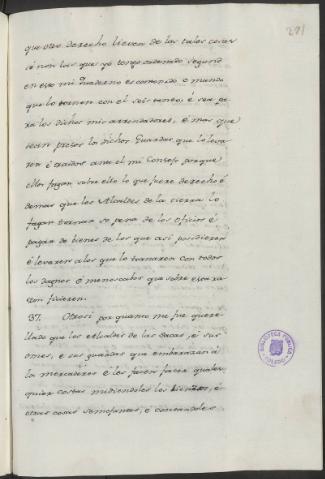 281
que otro derecho lieven de las tales cosas
si non las que yo tengo ordenado segund
en este mi quaderno es contenido e mando
que lo tornen con el seis tanto, é sea pa-
ra los dichos mis arrendadores, é mas que
sean presos los dichos Guardas que lo leva-
ren é traidos ante el mi Consejo porque
ellos fagan sobre ello lo que fuere derecho é
demas que los Alcaldes de la tierra lo
fagan tornar so pena de los oficios é
pagen de bienes de los que asi pendieren
é levaren a los que lo tomaren con todos
los daños é menoscabos que sobre esta ra-
zon ficieren.
37. Otrosi por quanto me fue quere-
llado que los Alcaldes de las sacas, é sus
omes, e sus guardas que embarazan á
la mercadores é les facen facer quales-
quier costas midiendoles los lienzos, é
otras cosas semejantes, e contandoles
BIBLIOTECA PUBLICA
TOLEDO